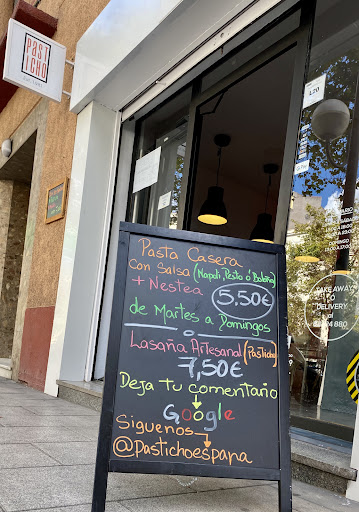 PAS
TI
CHO
Pasta Casera
con Salsa (Napoli, Pesto ó Boloña)
+ Nestea 5,50€
de Martes a Domingos
Lasaña Artesanal (Pasticho)
7,50€
Deja tu comentario
Google
Siguenos
@Pastichoespana
L20
SÁBADO
DOMINGO
TAKE AWAY
DELIVERY
880